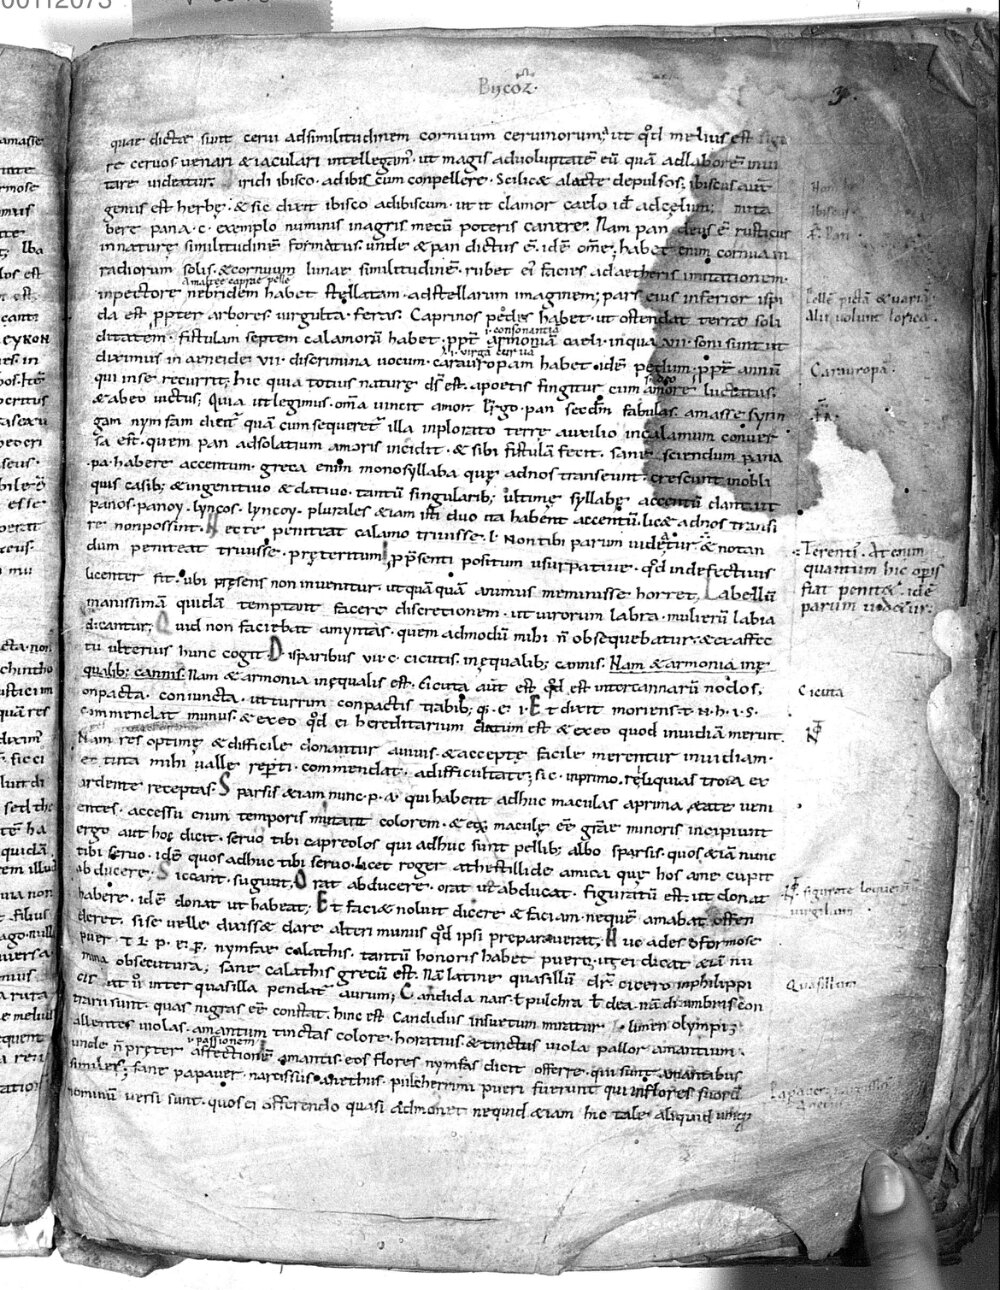 00112073
Bucoł.
3.
quae dictae sunt cerui adsimilitudinem cornuum ceruinorum, ut qđ melius est
re ceruos uenari & iaculari intellegam̄. ut magis aduoluptatē eū quā adlaborē inui
tare uideatur. iridi ibisco. adibiscum conpellere. Scilic& alacte depulsos; ibiscus aut̄
genus est herbę. & sic dixit ibisco adibiscum. ut it clamor caelo id ad cęlum; mita
bere pana .c. exemplo numinis inagris mecū poteris canere. Nam pan deus ē rusticus
innaturę similitudinē formatus. unde & pan dictus ē. idē om̄e; hab& enim cornua in
radiorum solis. & cornuum lunae similitudinē. rub& ei facies ad aetheris imitationem.
a matre caprae pelle
inpectore nebridem hab& stellatam. adstellarum imaginem; pars eius inferior ispi
da est ppter arbores uirgulta. feras. Caprinos pedes hab& ut ostendat terrae soli
ditatem. fistulam septem calamorū hab&. ppt̄ armoniā caeli. inqua .vii. soni sunt ut
i. consonantiā
diximus in aeneide. vii. discrimina uocum. caraúropam hab& . idē pedum. ppt̄ annū
i. uirgā curua
qui inse recurrit; hic quia totius naturę ds̄ est. apoetis fingitur cum amore luctatus.
& abeo uictus; quia ut legimus. om̄a uincit amor. ergo. pan sc̄dm fabulas amasse syrin
gam nymfam dicit̄ quā cum sequeret̄ illa inplorato terre auxilio incalamum conuer
sa est. quem pan adsolatium amoris incidit. & sibi fistulā fecit. sane sciendum pana
.pa. habere accentum. greca enim monosyllaba quę adnos transeunt. crescunt inobli
quis casib; & ingenitiuo & datiuo. tantū singularib; ultimę syllabę accentū dant. ut
panos. panoy. lyncos. lyncoy. plurales &iam isti duo ita habent accentū. lic& adnos transi
re nonpossint. Nec te peniteat calamo triuisse. l. Non tibi parum uideat̄ur. & notan
dum peniteat triuisse. pręteritum ppsenti positum usurpatiue. qđ indefectiuis
licenter fit. ubi pręsens non inuenitur. ut quā quā animus meminisse horret. Labellū
manissimā quidā temptant facere discretionem. ut uirorum labra. mulierū labia
dicantur; Quid non faciebat amyntas. quem admodū mihi n̄ obsequebatur. &eraffec
tu ulterius hunc cogit Disparibus .vii.c. cicutis. inęqualib; cannis. Nam & armonia inę
qualib; cannis. Nam & armonia inęqualis est. Cicuta aut̄ est qđ est inter cannarū nodos.
onpacta. coniuncta. ut turrum conpactis trabib; Et dixit moriens .t. n. h. i. s.
commendat munus. & exeo qđ ei hereditarium datum est & exeo quod inuidiā meruit.
Nam res optimę & difficile donantur amicis. & acceptę facile merentur inuidiam.
ec tuta mihi ualle rep̄ti. commendat. adifficultate; sic inprimo. reliquias troia ex
ardente receptas. Sparsis &iam nunc .p. a. qui habent adhuc maculas aprima &ate ueni
entes. accessu enim temporis mutant colorem. & eę maculę ēē grāe minoris incipiunt
ergo aut hoc dicit. seruo tibi capreolos qui adhuc sunt pellib; albo sparsis. quos &iā nunc
tibi seruo. idē quos adhuc tibi seruo. lic& roger athestillide amica quę hos ame cupit
abducere; Siccant. sugunt. Orat abducere. orat ut abducat. figuratū est. ut donat
habere. idē donat ut habeat; Et faci& noluit dicere & faciam. nequē amabat offen
deret. si se uelle dixiss& dare alteri munus qđ ipsi preparauerat; Huc ades o formose
puer. nymfae calathis. tantū honoris hab& puero. ut ei dicat &iā nu
mina obsecutura; sane calathis grecū est. Nā latine quasillū dr̄. cicero inphilippi
cis. at ū inter quasilla pendat̄ aurum; Candida nais. t pulchra t dea. nā di umbris con
trarii sunt. quas nigras ēē constat. hinc est Candidus insuetum miratur. limen olympi;
allentes uiolas. amantum tinctas colore. horatius. & tinctus uiola pallor amantium.
unde n̄ pręter affectionē amantis. eos flores nymfas dicit offerre. qui sunt amantibus
ɫ passionem
similes; sane papauer. narcissus. anethus. pulcherrimi pueri fuerunt qui inflores suorū
nominū uersi sunt. quos ei offerendo quasi admonet nequid &iam hic tale aliquid
Ibiscus
Pan
pelle picta & uaria.
Alii uolunt lorica.
Caraúropā.
Terenti. At enim
quantum hic opis
fiat penit&. idē
parum uidetur.
Cicuta
figurate loquen
uirgiliani
Quasillum
Papauer